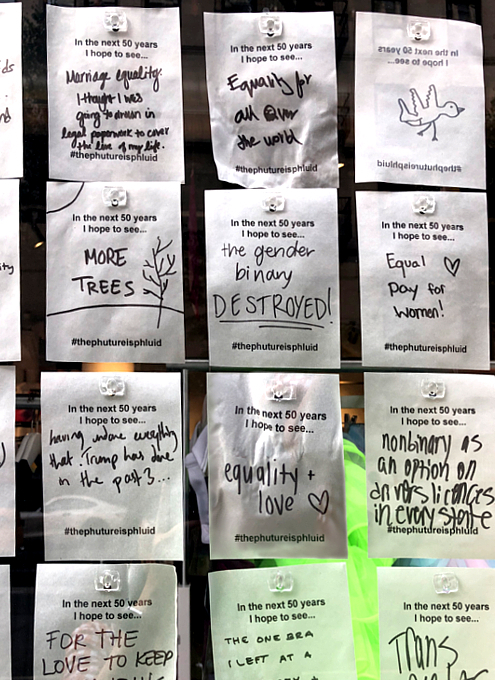 In the next 50 years
I hope to see...
Marriage equality.
I thought I was
going to drown in
legal paperwork to cover
the love of my life.
#thephutureisphluid
In the next 50 years
I hope to see...
Equality for
all over
the world
#thephutureisphluid
In the next 50 years
I hope to see...
#thephutureisphluid
In the next 50 years
I hope to see...
MORE
TREES
#thephutureisphluid
In the next 50 years
I hope to see...
the gender
binary
DESTROYED!
#thephutureisphluid
In the next 50 years
I hope to see...
Equal
pay for
women!
#thephutureisphluid
In the next 50 years
I hope to see...
having undone everything
that Trump has done
in the past 3...
#thephutureisphluid
In the next 50 years
I hope to see...
equality +
love
#thephutureisphluid
In the next 50 years
I hope to see...
nonbinary as
an option on
drivers licences
in every state
#thephutureisphluid
In the next 50 years
I hope to see...
FOR THE
LOVE TO KEEP
In the next 50 years
I hope to see...
THE ONE BRA
I LEFT AT A
In the next 50 years
I hope to see...
Trans